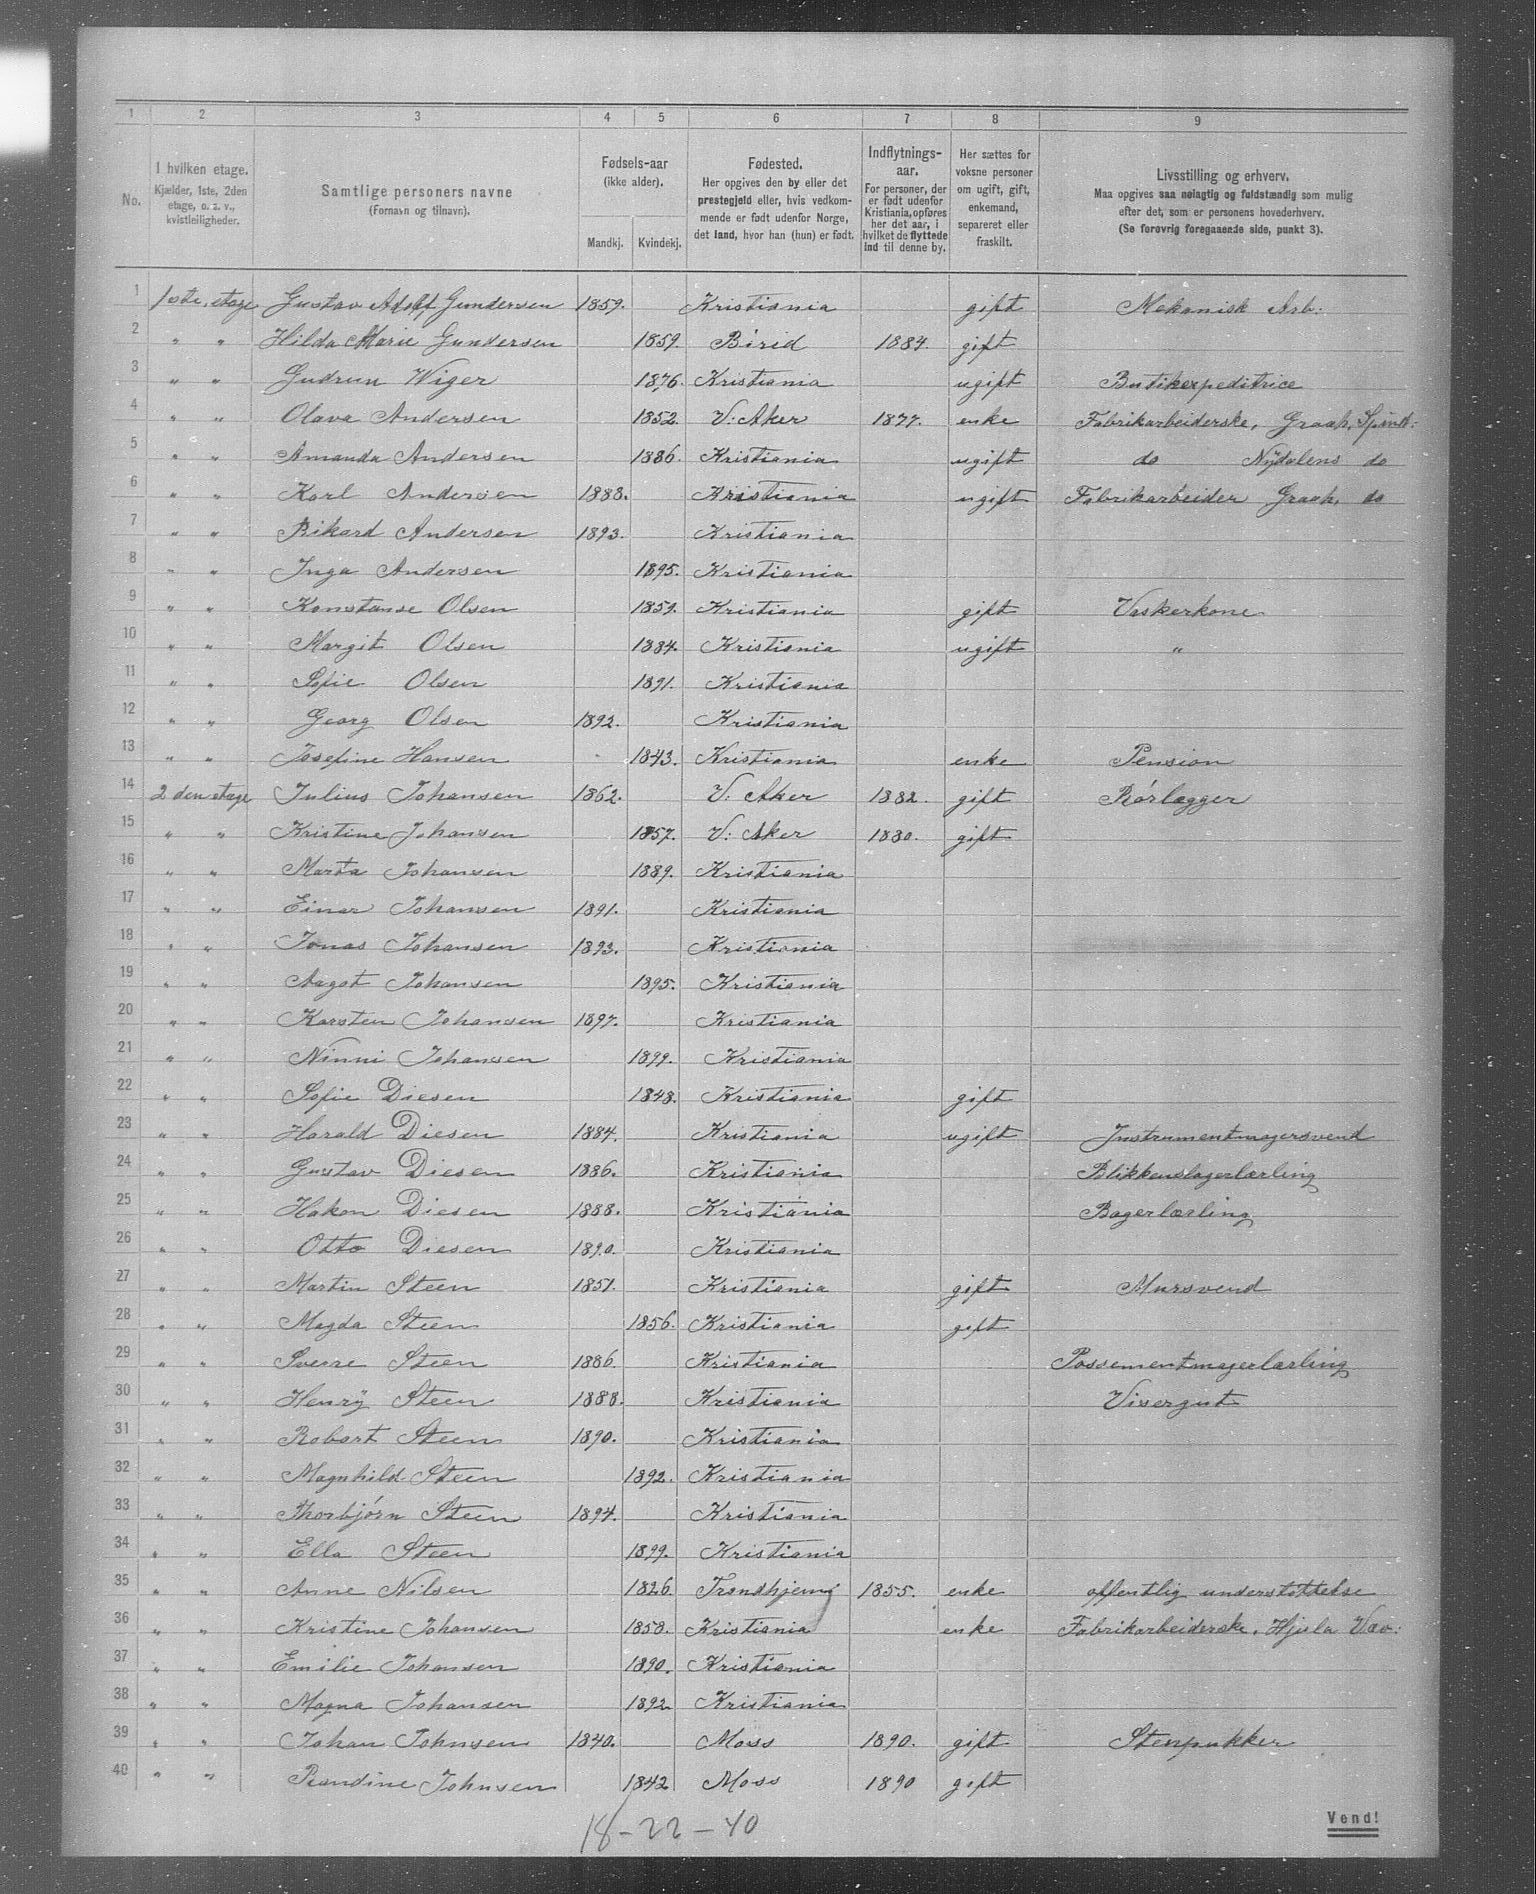 1 2 3 4 5 6 7 8 9
No. I hvilken etage. Kjælder, 1ste, 2den etage, o. s. v., kvistleiligheder. Samtlige personers navne (Fornavn og tilnavn). Fødsels-aar (ikke alder). Mandkj. Kvindekj. Fødested. Her opgives den by eller det prestegjeld eller, hvis vedkommende er født udenfor Norge, det land, hvor han (hun) er født. Indflytnings-aar. For personer, der er født udenfor Kristiania, opføres her det aar, i hvilket de flyttede ind til denne by. Her sættes for voksne personer om ugift, gift, enkemand, separeret eller fraskilt. Livsstilling og erhverv. Maa opgives saa nøiagtig og fuldstændig som mulig efter det, som er personens hovederhverv. (Se forøvrig foregaaende side, punkt 3).
1 1ste etage Gustav Adolf Gundersen 1859. Kristiania gift Mekanisk Arb:
2 " " Hilda Marie Gundersen 1859. Birid 1884. gift
3 " " Gudrun Wiger 1876. Kristiania ugift Butikexpeditrice
4 " " Olava Andersen 1852. V: Aker 1877. enke Fabrikarbeiderske, Graah, Spind:
5 " " Amanda Andersen 1886. Kristiania ugift do Nÿdalens do
6 " " Karl Andersen 1888. Kristiania ugift Fabrikarbeider Graah, do
7 " " Rikard Andersen 1893. Kristiania
8 " " Inga Andersen 1895. Kristiania
9 " " Konstanse Olsen 1859. Kristiania gift Vaskerkone
10 " " Margit Olsen 1884. Kristiania ugift "
11 " " Sofie Olsen 1891. Kristiania
12 " " Georg Olsen 1892. Kristiania
13 " " Josefine Hansen 1843. Kristiania enke Pension
14 2 den etage Julius Johansen 1862. V: Aker 1882. gift Rørlægger
15 " " Kristine Johansen 1857. V: Aker 1880. gift
16 " " Marta Johansen 1889. Kristiania
17 " " Einar Johansen 1891. Kristiania
18 " " Jonas Johansen 1893. Kristiania
19 " " Aagot Johansen 1895. Kristiania
20 " " Karsten Johansen 1897. Kristiania
21 " " Ninni Johansen 1899. Kristiania
22 " " Sofie Diesen 1848. Kristiania gift
23 " " Harald Diesen 1884. Kristiania ugift Instrumentmagersvend
24 " " Gustav Diesen 1886. Kristiania Blikkenslagerlærling
25 " " Hakon Diesen 1888. Kristiania Bagerlærling
26 " " Otto Diesen 1890. Kristiania
27 " " Martin Steen 1851. Kristiania gift Mursvend
28 " " Magda Steen 1856. Kristiania gift
29 " " Sverre Steen 1886. Kristiania Possementmagerlærling
30 " " Henrÿ Steen 1888. Kristiania Visergut
31 " " Robert Steen 1890. Kristiania
32 " " Magnhild Steen 1892. Kristiania
33 " " Thorbjørn Steen 1894. Kristiania
34 " " Ella Steen 1899. Kristiania
35 " " Anne Nilsen 1826. Trondhjem 1855. enke offentlig understøttelse
36 " " Kristine Johansen 1858. Kristiania enke Fabrikarbeiderske, Hjula Væv:
37 " " Emilie Johansen 1890. Kristiania
38 " " Magna Johansen 1892 Kristiania
39 " " Johan Johnsen 1840. Moss 1890. gift Stenpukker
40 " " Randine Johnsen 1842 Moss 1890 gift
18-22-40
Vend!